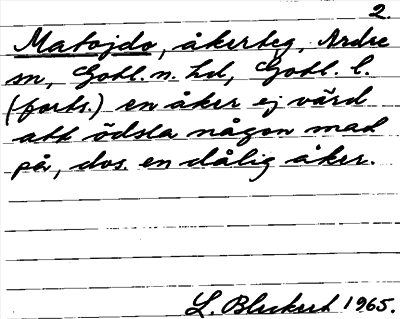 2.
Matojdo, åkerteg, Ardre
sn, Gotl. n. hd, Gotl. l.
(forts.) en åker ej värd
att ödsla någon mat
på, dvs. en dålig åker.
L. Bleckert 1965.